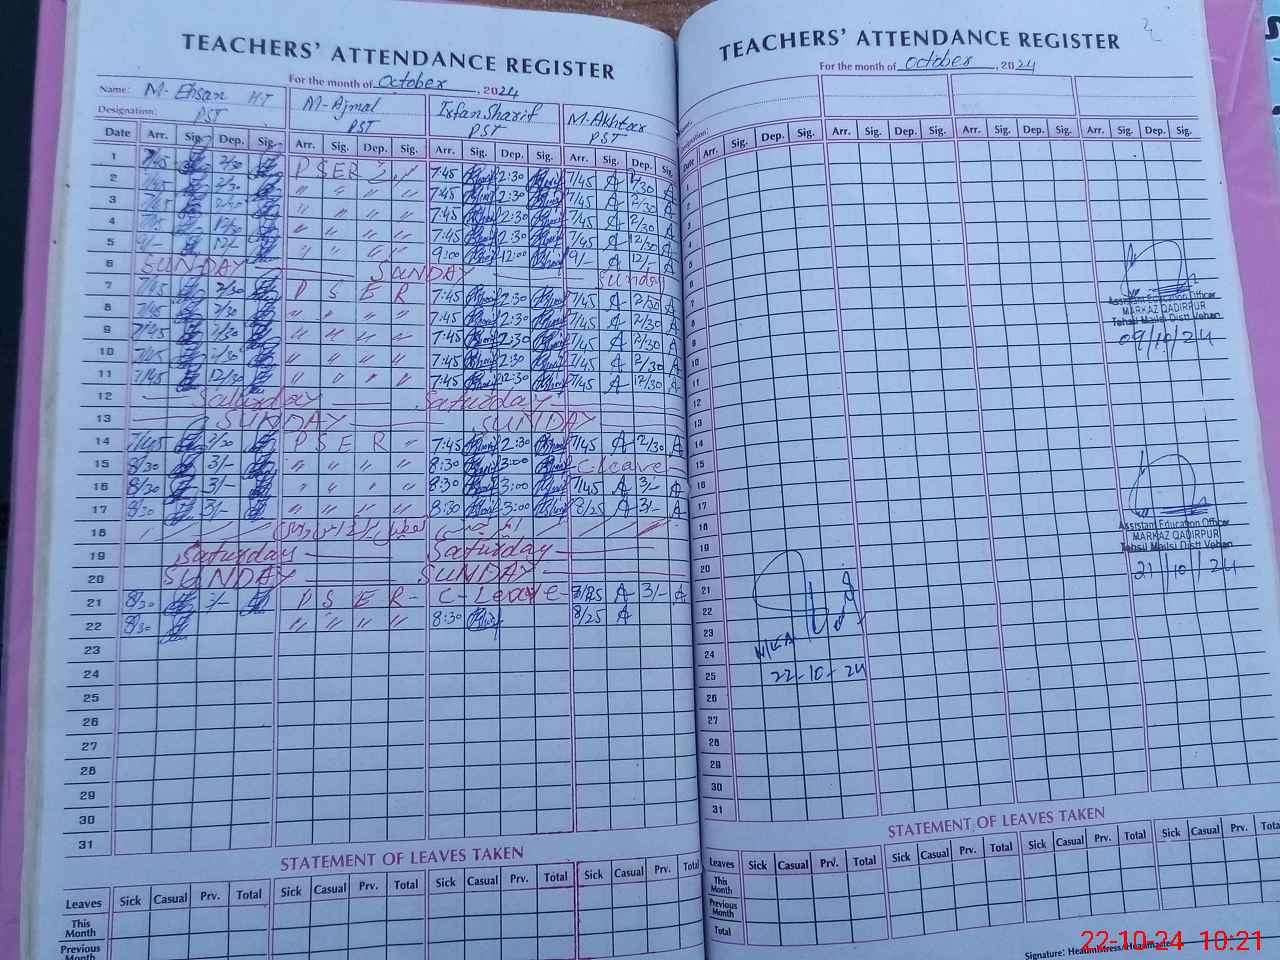 TEACHERS' ATTENDANCE REGISTER
For the month of October, 2024
Name: M. Ehsan HT M. Ajmal Irfan Sharif M. Akhtar
Designation: PST PST PST PST
Date Arr. Sig. Dep. Sig. Arr. Sig. Dep. Sig. Arr. Sig. Dep. Sig. Arr. Sig. Dep. Sig.
1 7/45 2/30 PSER 7:45 2:30 7/45 A 2/30 A
2 7/45 2/30 " " " " 7:45 2:30 7/45 A 2/30 A
3 7/45 2/30 " " " " 7:45 2:30 7/45 A 2/30 A
4 7/45 12/30 " " " " 7:45 2:30 7/45 A 12/30 A
5 9/- 12/- " " " " 9:00 12:00 9/- A 12/- A
6 SUNDAY SUNDAY Sunday
7 7/45 2/30 P S E R 7:45 2:30 7/45 A 2/30 A
8 7/45 2/30 " " " " 7:45 2:30 7/45 A 2/30 A
9 7/45 2/30 " " " " 7:45 2:30 7/45 A 2/30 A
10 7/45 2/30 " " " " 7:45 2:30 7/45 A 2/30 A
11 7/45 12/30 " " " " 7:45 12:30 7/45 A 12/30 A
12 Saturday Saturday
13 SUNDAY SUNDAY
14 7/45 2/30 P S E R " 7:45 2:30 7/45 A 2/30 A
15 8/30 3/- " " " " 8:30 3:00 C leave
16 8/30 3/- " " " " 8:30 3:00 7/45 A 3/- A
17 8/30 3/- " " " " 8:30 3:00 8/25 A 3/- A
18
19 Saturday Saturday
20 SUNDAY SUNDAY
21 8/30 3/- P S E R - C-Leave - 8/25 A 3/- A
22 8/30 " " " " 8:30 8/25 A
23
24
25
26
27
28
29
30
31
STATEMENT OF LEAVES TAKEN
Leaves Sick Casual Prv. Total Sick Casual Prv. Total Sick Casual Prv. Total Sick Casual Prv. Total
This Month
Previous Month
TEACHERS' ATTENDANCE REGISTER
For the month of October, 2024
Date Arr. Sig. Dep. Sig. Arr. Sig. Dep. Sig. Arr. Sig. Dep. Sig. Arr. Sig. Dep. Sig.
1
2
3
4
5
6
7
8
9
10
11
12
13
14
15
16
17
18
19
20
21
22
23
24
25
26
27
28
29
30
31
Assistant Education Officer
MARKAZ QADIRPUR
Tehsil Mailsi Distt Vehari
09/10/24
Assistant Education Officer
MARKAZ QADIRPUR
Tehsil Mailsi Distt Vehari
21/10/24
22-10-24
STATEMENT OF LEAVES TAKEN
Leaves Sick Casual Prv. Total Sick Casual Prv. Total Sick Casual Prv. Total Sick Casual Prv. Total
This Month
Previous Month
Total
Signature: Headmistress/Headmaster
22-10.24 10:21